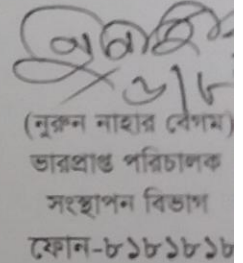 ৩/৮
(নুরুন নাহার বেগম)
ভারপ্রাপ্ত পরিচালক
সংস্থাপন বিভাগ
ফোন-৮১৮১৮১৮